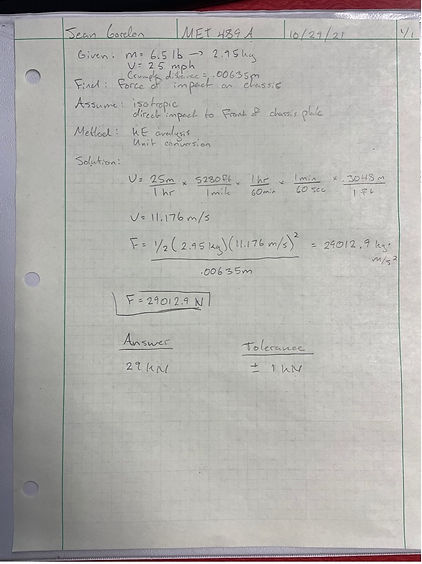 Sean Gordon MET 489A 10/29/21 1/1
Given: m = 6.5 lb → 2.95 kg
V = 25 mph
Crumple distance = .00635m
Find: Force of impact on chassis
Assume: isotropic
direct impact to front of chassis plate
Method: KE analysis
Unit conversion
Solution:
V = 25m/1hr × 5280ft/1mile × 1hr/60min × 1min/60sec × .3048m/1ft
V = 11.176 m/s
F = 1/2(2.95 kg)(11.176 m/s)²/.00635m = 29012.9 kg·m/s²
F = 29012.9 N
Answer Tolerance
29 kN ± 1 kN